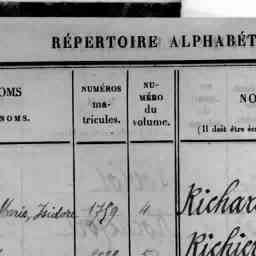 RÉPERTOIRE ALPHABÉT
OMS
NOMS.
NUMÉROS
ma-
tricules.
NU-
MÉRO
du
volume.
NO
(Il doit être éc
Marie, Isidore 1759 4 Richar
Richier